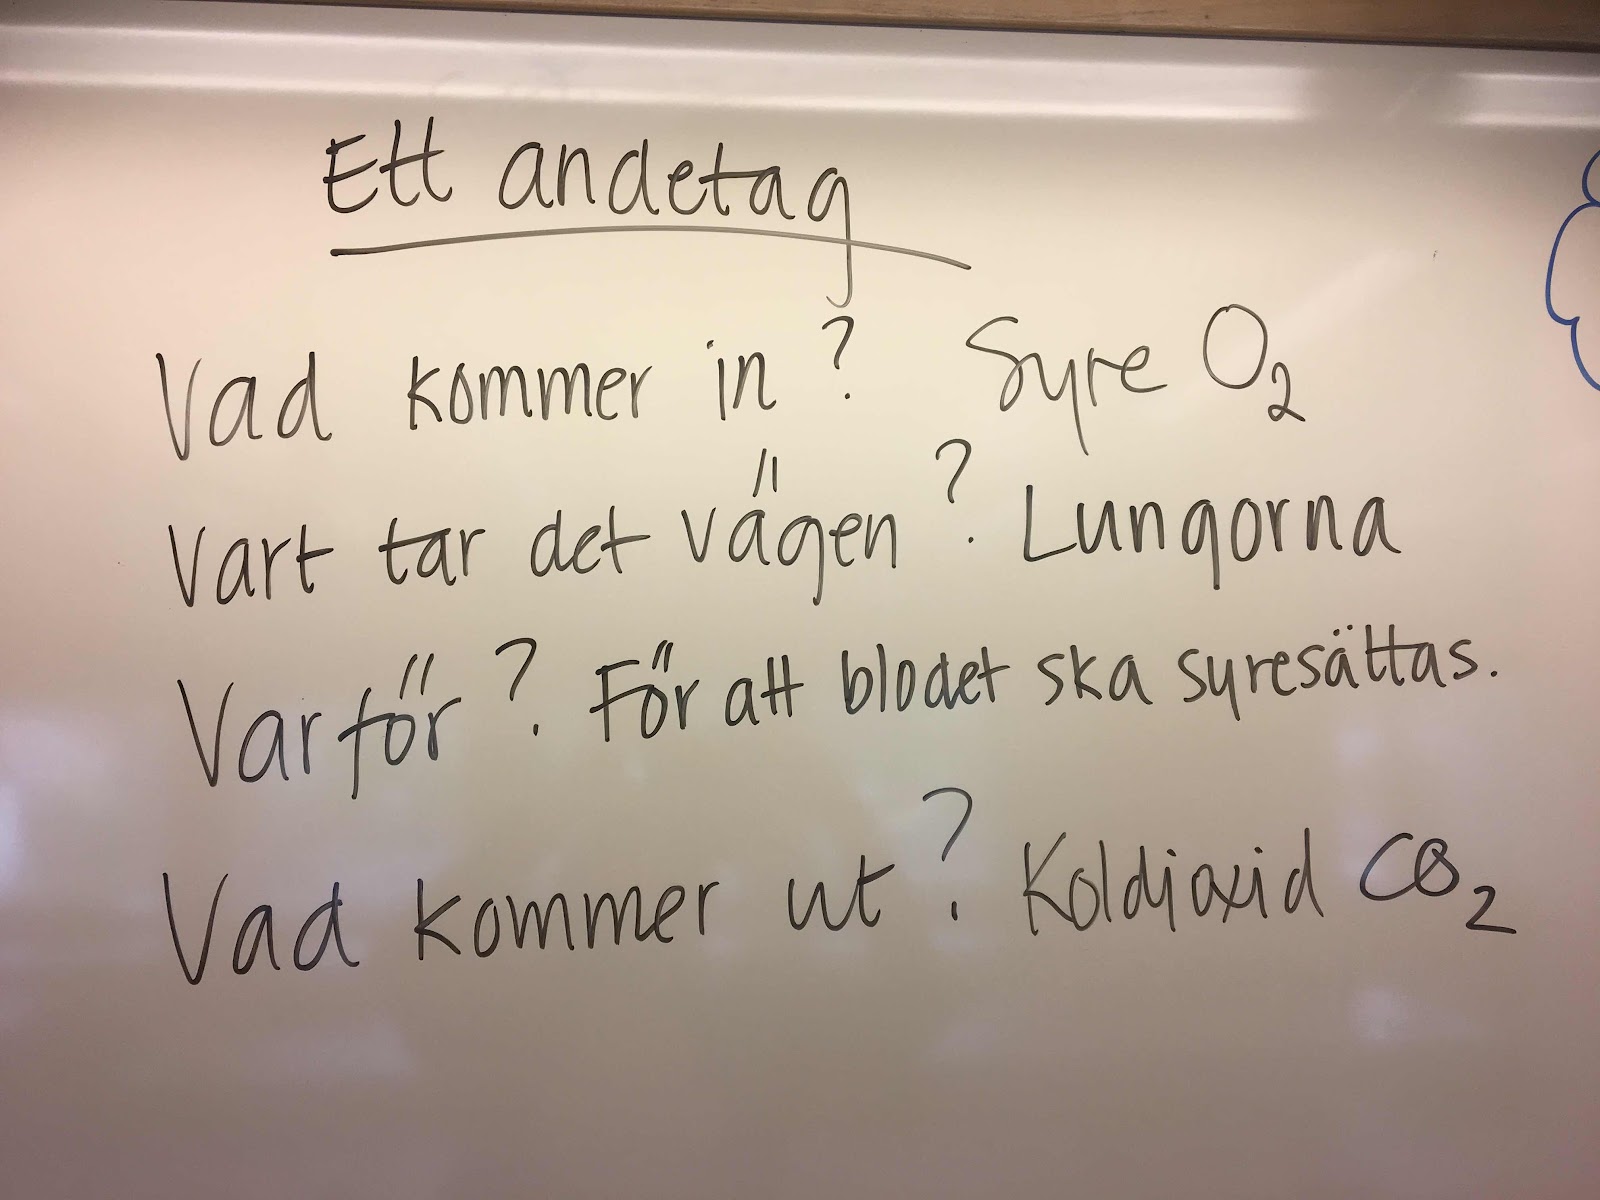 Ett andetag
Vad kommer in? Syre O₂
Vart tar det vägen? Lungorna
Varför? För att blodet ska syresättas.
Vad kommer ut? Koldioxid CO₂